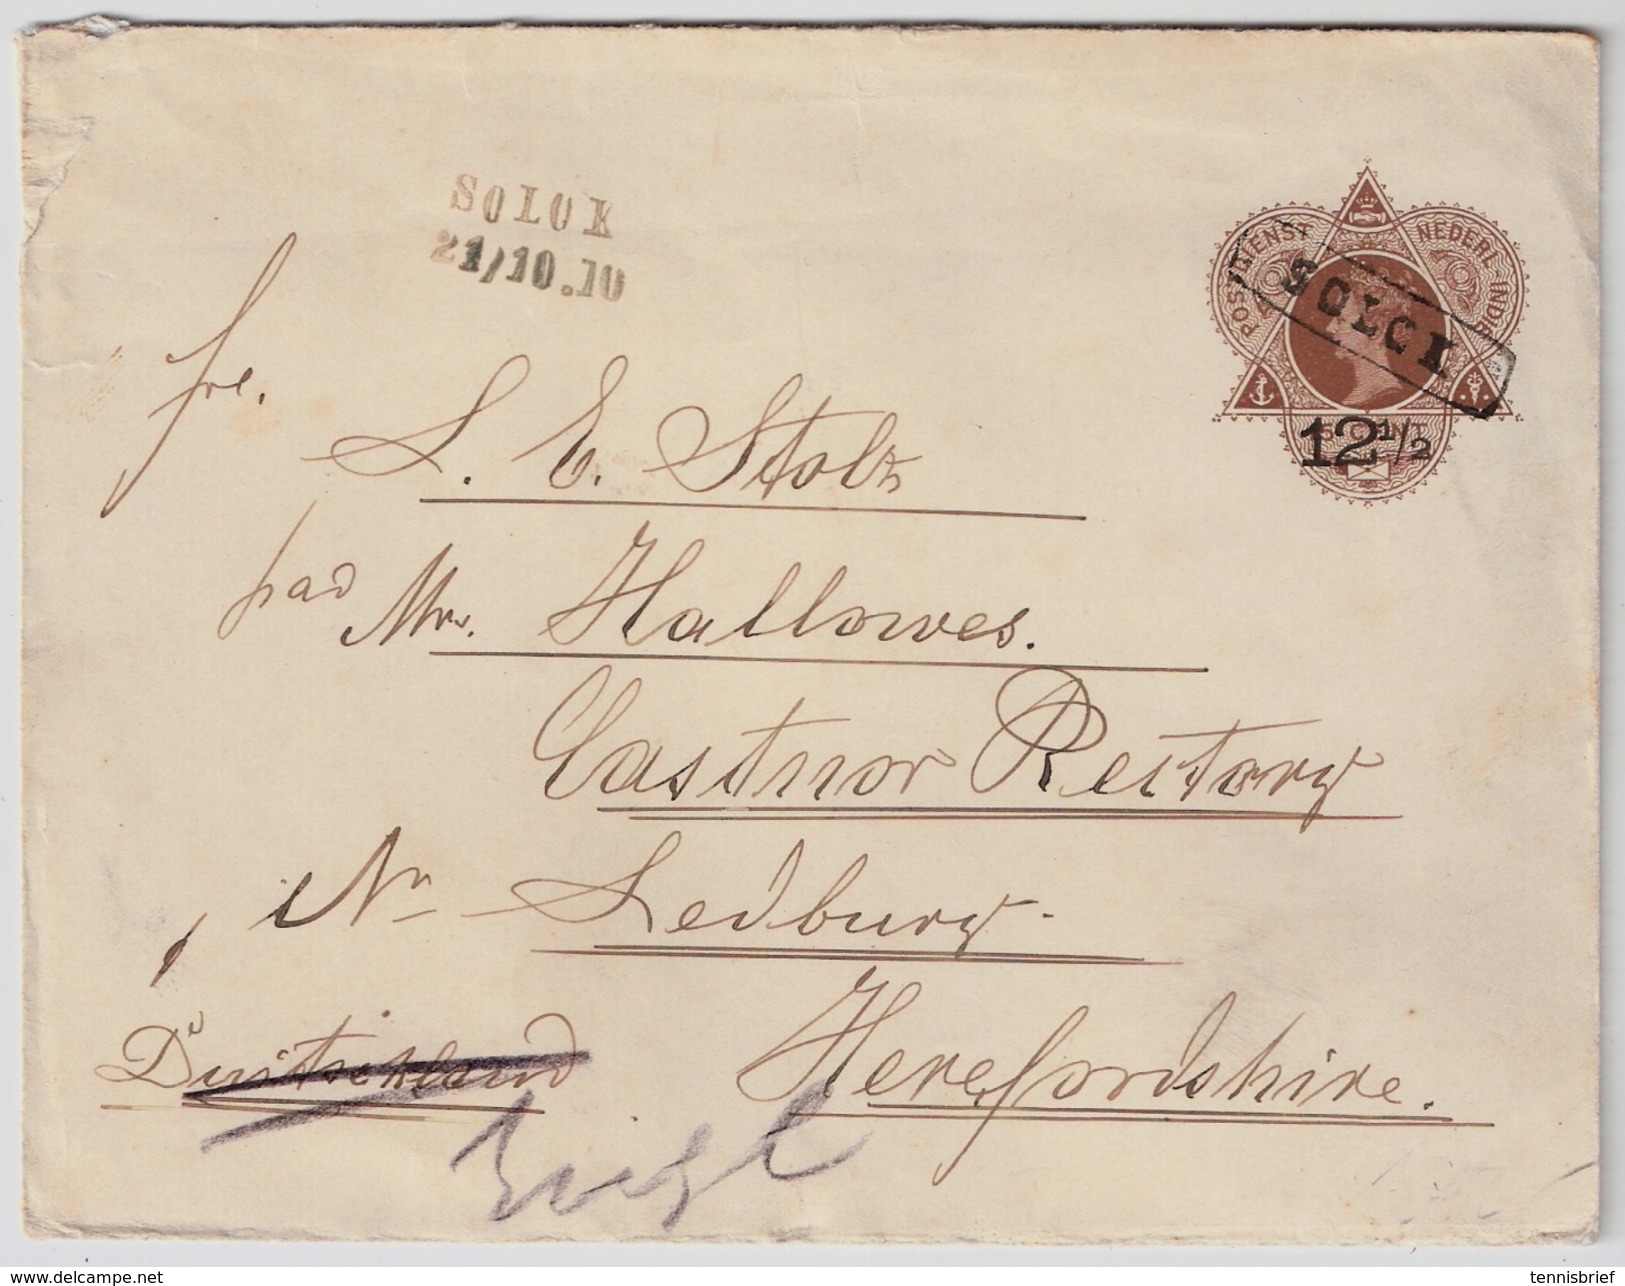 SOLOK
21/10.10
POSTDIENST NEDERL INDIE
SOLOK
12 1/2
fre.
L. E. Stolz
pad Mrs. Hallowes.
Castnor Rectory
Nr Ledbury.
Duitschland Herefordshire.
Engl
www.delcampe.net
tennisbrief